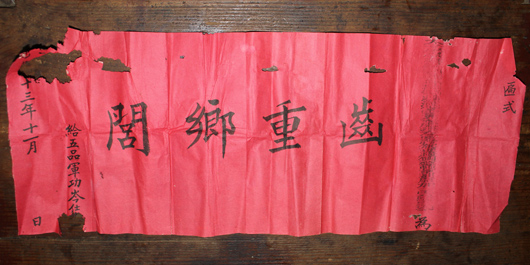 匾式
為
齒重鄉閭
給五品軍功岑仕
十三年十一月 日